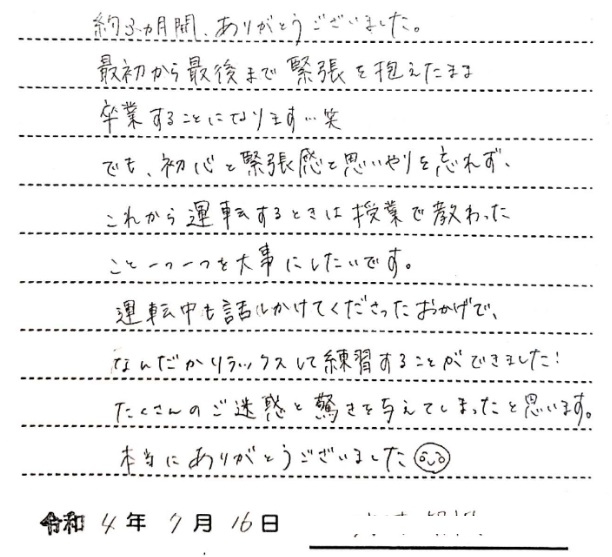 約3ヵ月間、ありがとうございました。
最初から最後まで緊張を抱えたまま
卒業することになります…笑
でも、初心と緊張感と思いやりを忘れず、
これから運転するときは授業で教わった
こと一つ一つを大事にしたいです。
運転中も話しかけてくださったおかげで、
なんだかリラックスして練習することができました!
たくさんのご迷惑と驚きを与えてしまったと思います。
本当にありがとうございました
令和 4年 7月 16日